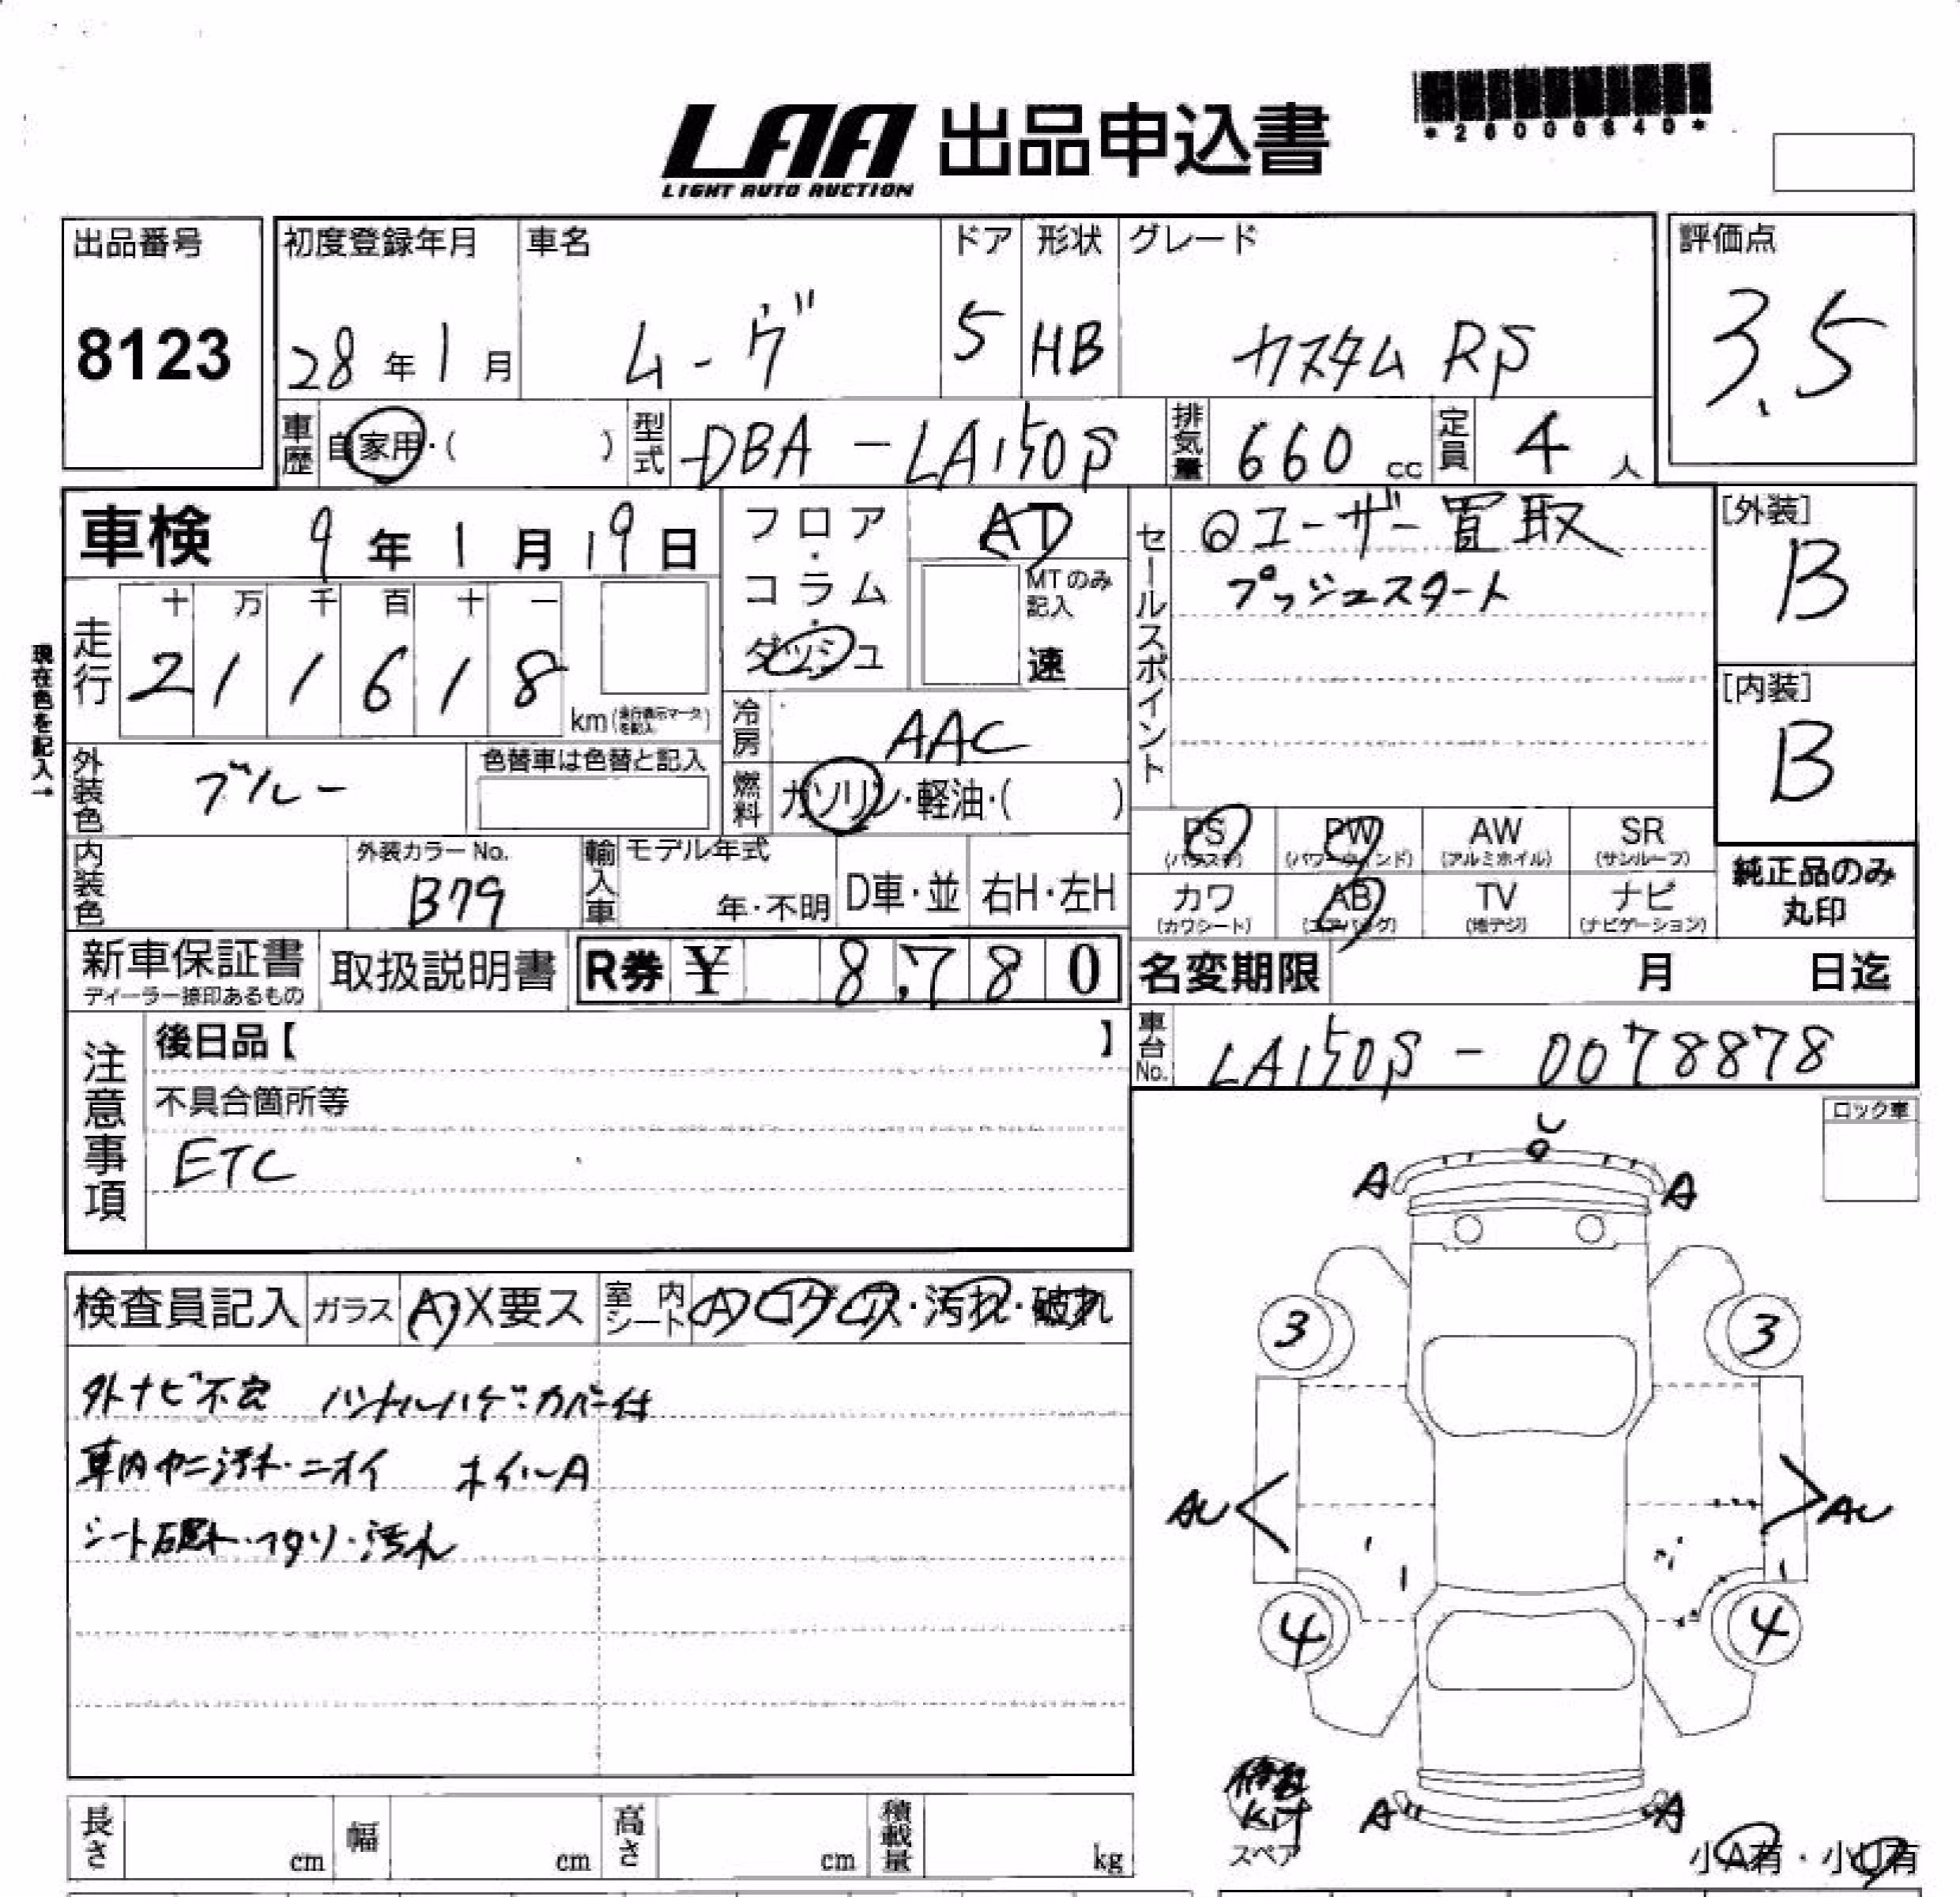 LAA 出品申込書
LIGHT AUTO AUCTION
*26000640*
出品番号
8123
初度登録年月 車名 ドア 形状 グレード
28年1月 ムーヴ 5 HB カスタム RS
評価点
3.5
車歴 自家用・( ) 型式 DBA-LA150S 排気量 660cc 定員 4人
車検 9年1月19日
フロア・コラム・ダッシュ
AT
MTのみ記入
速
セールスポイント
@ユーザー買取
プッシュスタート
[外装]
B
[内装]
B
現在色を記入→
走行 十 万 千 百 十 一
2 1 1 6 1 8 km (走行表示マークを記入)
冷房 AAC
外装色 ブルー 色替車は色替と記入
燃料 ガソリン・軽油・( )
PS (パワステ) PW (パワーウィンド) AW (アルミホイル) SR (サンルーフ)
カワ (カワシート) AB (エアバッグ) TV (地デジ) ナビ (ナビゲーション)
純正品のみ
丸印
内装色 外装カラーNo. B79 輸入車 モデル年式 年・不明 D車・並 右H・左H
新車保証書 ディーラー捺印あるもの 取扱説明書 R券 ¥ 8,780
名変期限 月 日迄
車台No. LA150S - 0078878
注意事項
後日品【 】
不具合箇所等
ETC
ロック車
検査員記入 ガラス A・X要ス 室内シート A コゲ 汚れ・破れ
外ナビ不良 ハンドルハゲ・カバー付
車内ヤニ汚れ・ニオイ ホイールA
シート破れ・ヘタリ・汚れ
U
A A
3 3
AU AU
4 4
A A
修理
Kit
スペア
小A有・小U有
長さ cm 幅 cm 高さ cm 積載量 kg